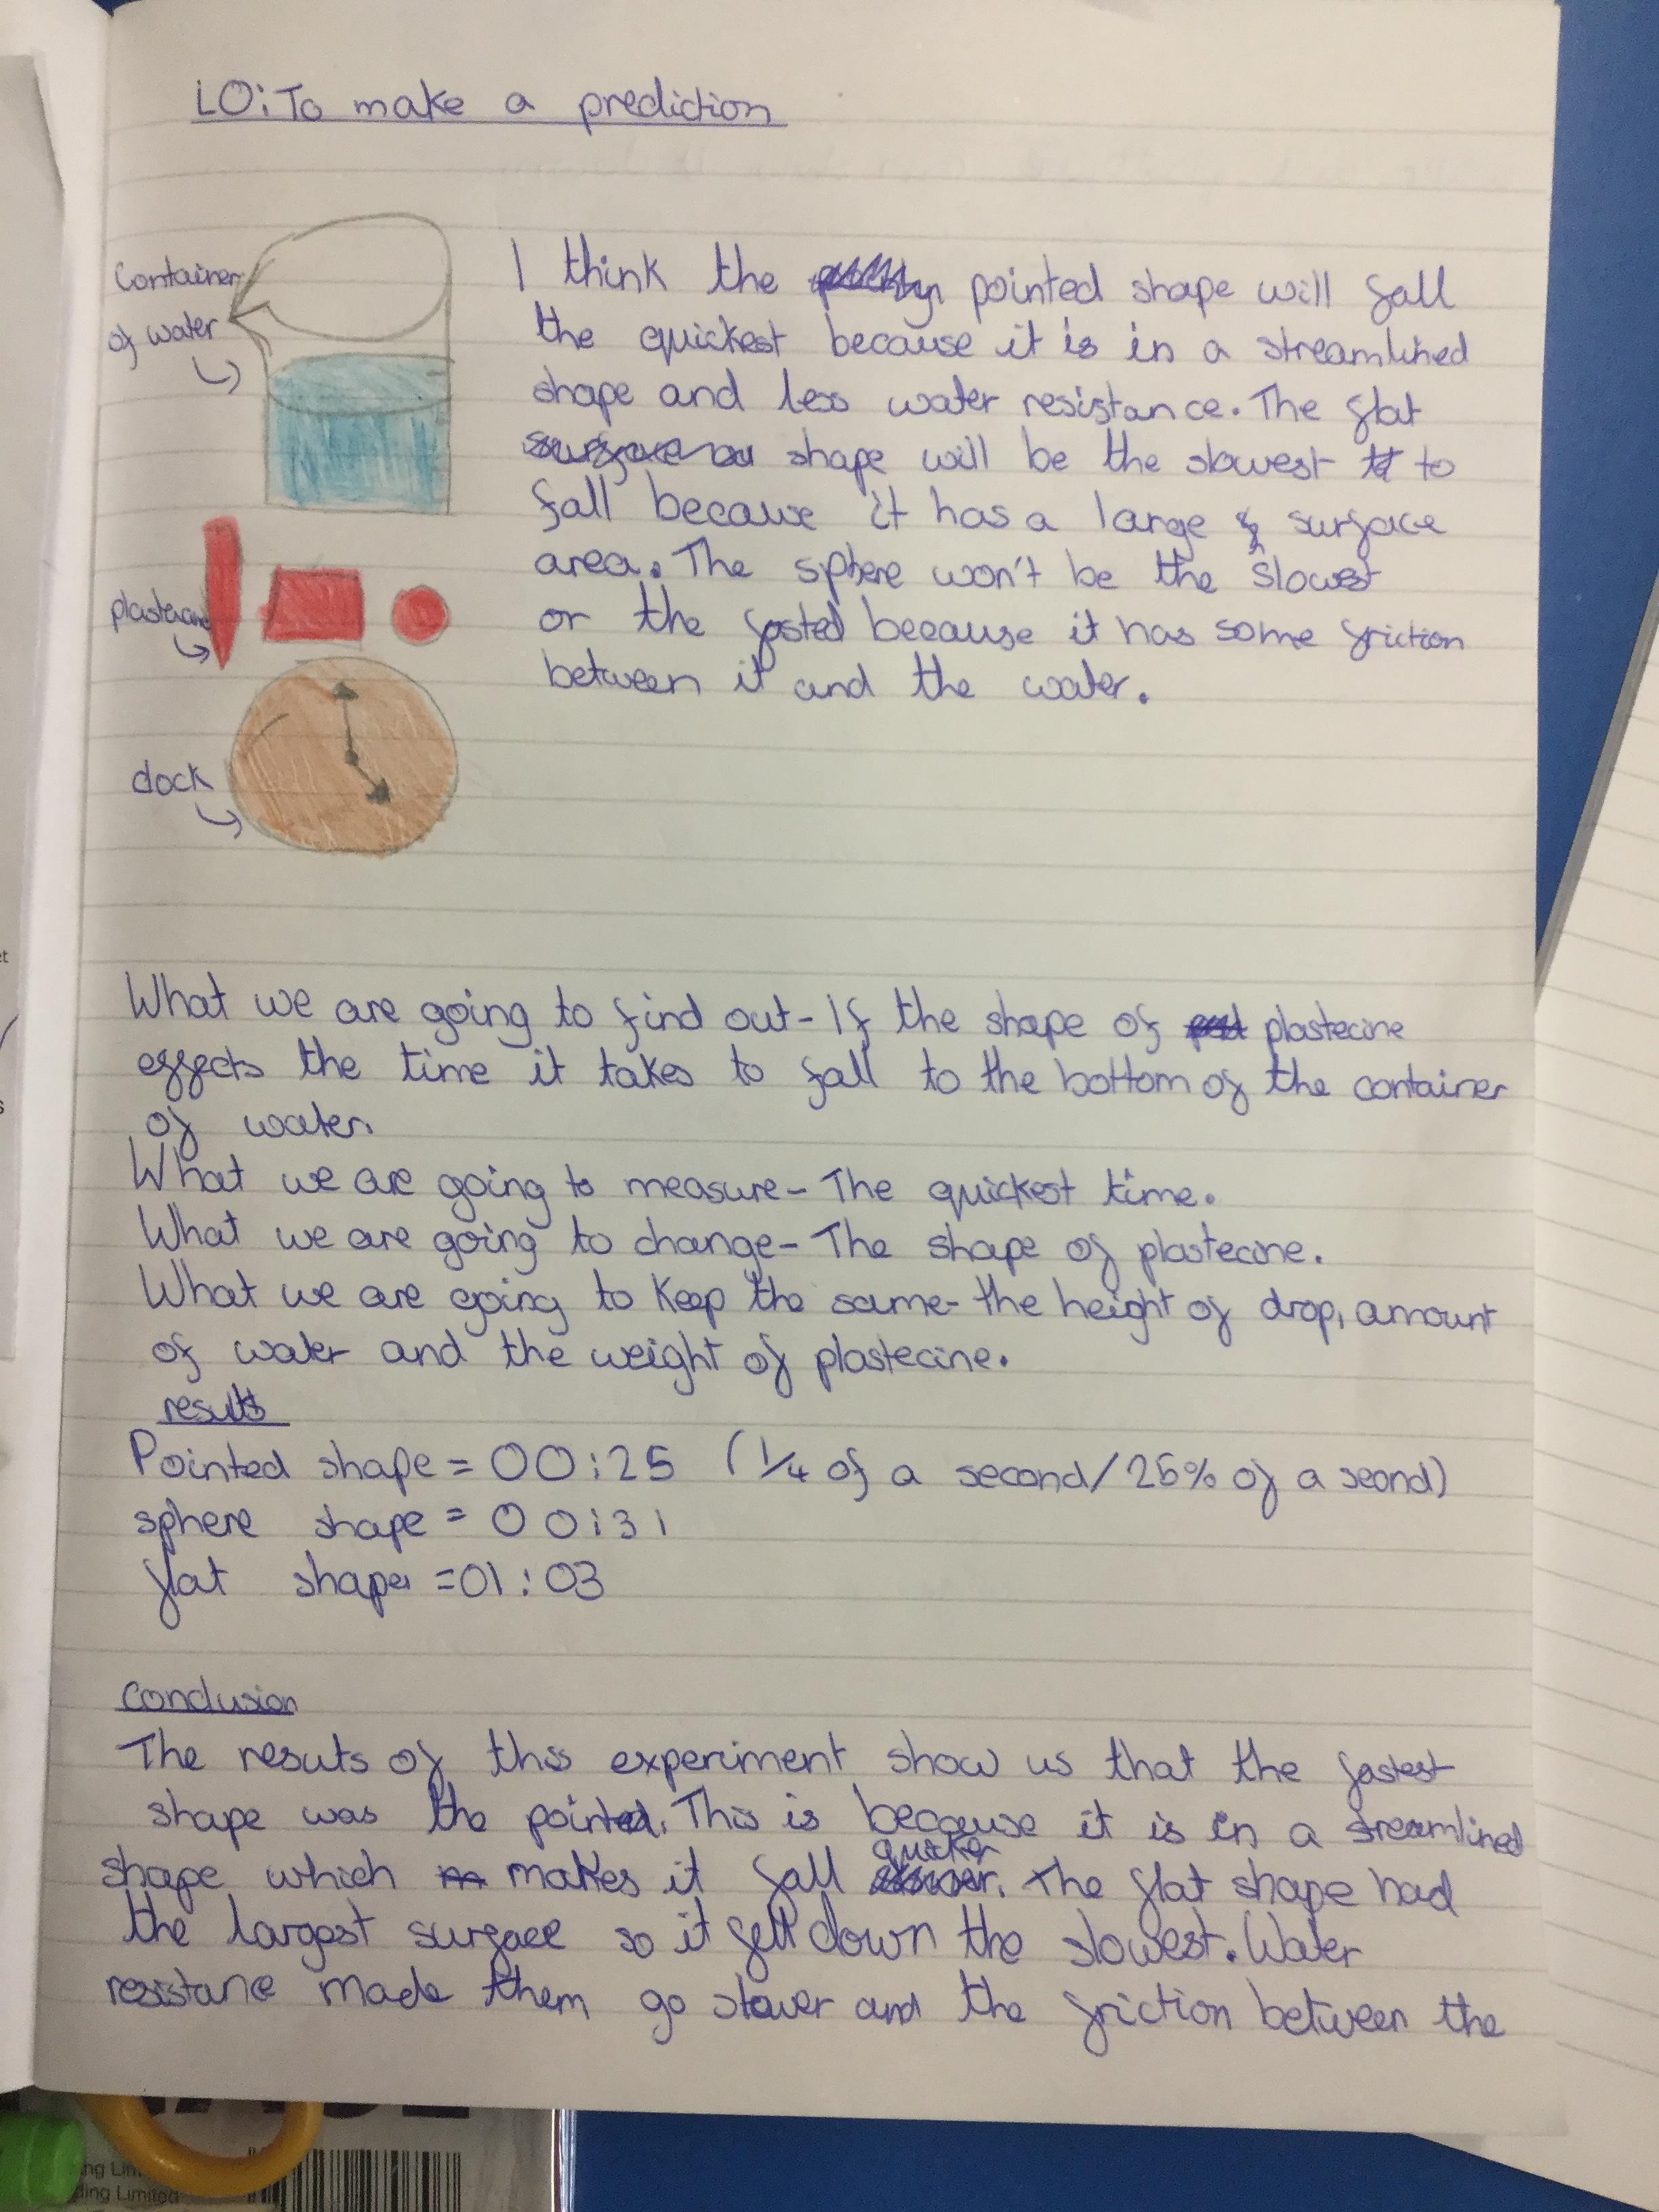 LO: To make a prediction
Container
of water
plastecine
clock
I think the pointed shape will fall
the quickest because it is in a streamlined
shape and less water resistance. The flat
surface shape will be the slowest to
fall because it has a large surface
area. The sphere won't be the slowest
or the fasted because it has some friction
between it and the water.
What we are going to find out - If the shape of plastecine
effects the time it takes to fall to the bottom of the container
of water.
What we are going to measure - The quickest time.
What we are going to change - The shape of plastecine.
What we are going to keep the same - the height of drop, amount
of water and the weight of plastecine.
results
Pointed shape = 00:25 (1/4 of a second/25% of a seond)
sphere shape = 00:31
flat shape = 01:03
conclusion
The resuts of this experiment show us that the fastest
shape was the pointed. This is because it is in a streamlined
shape which makes it fall quicker. The flat shape had
the largest surface so it fell down the slowest. Water
resistane made them go slower and the friction between the
ng Lim
ding Limited